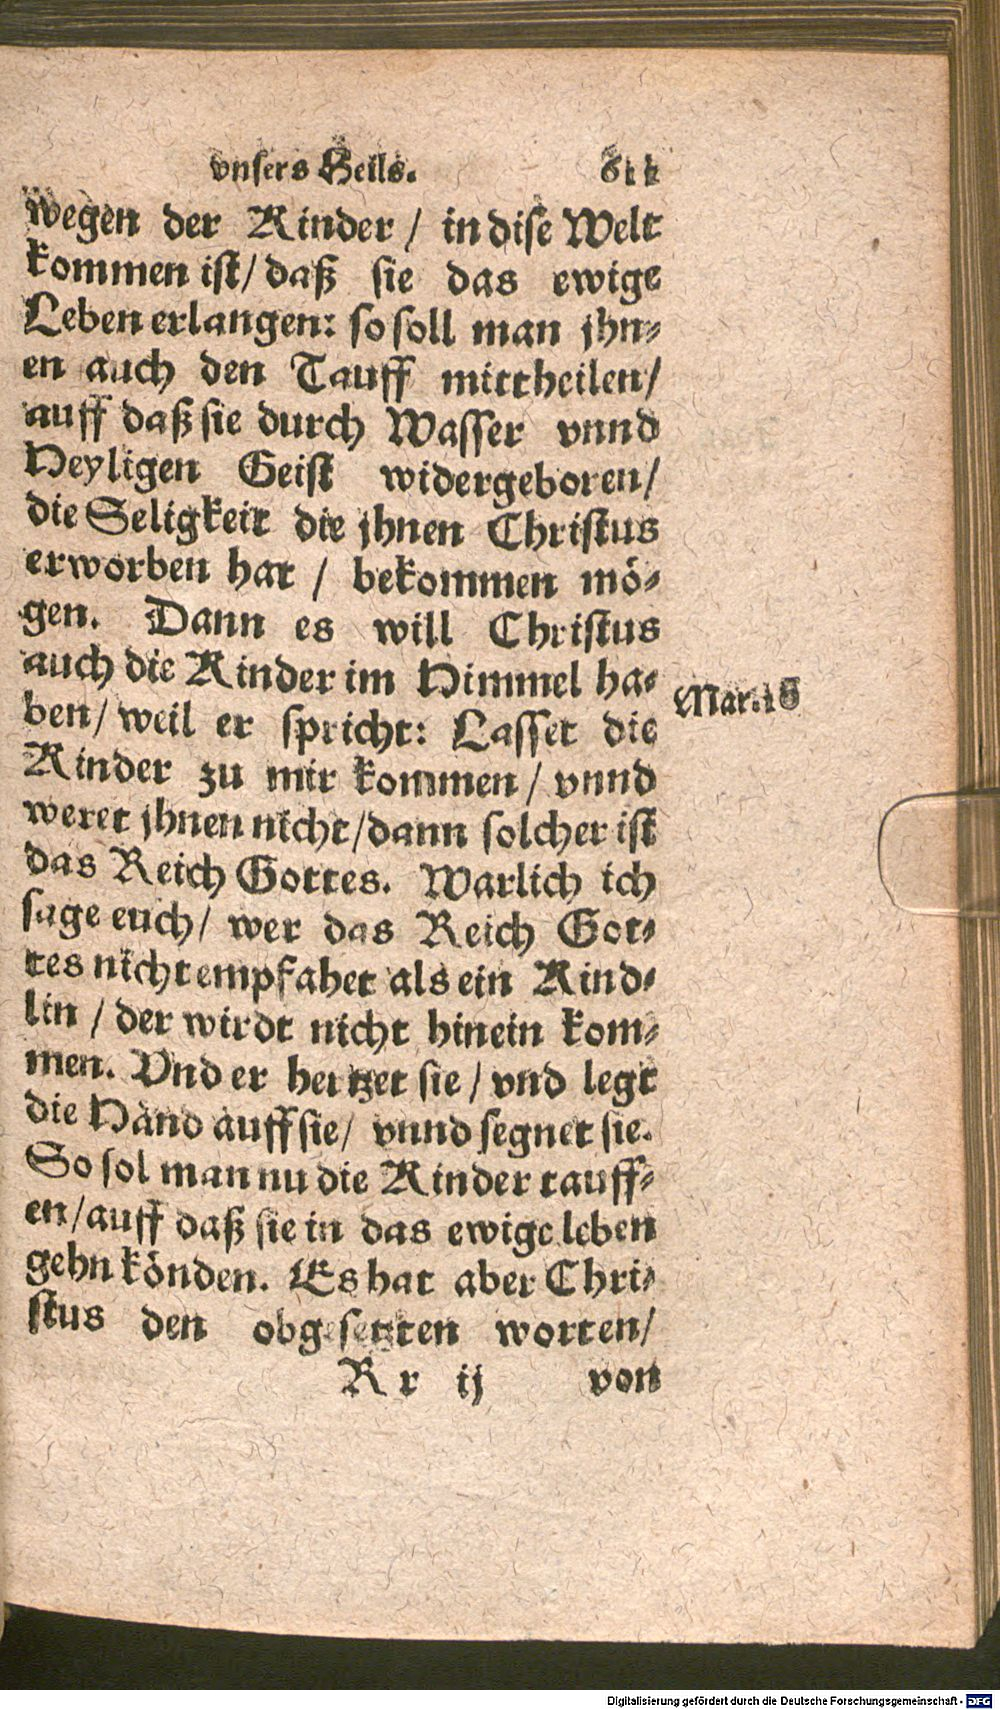 vnsers Heils. 611
wegen der Kinder / in dise Welt
kommen ist/ daß sie das ewige
Leben erlangen: so soll man jhn-
en auch den Tauff mittheilen/
auff daß sie durch Wasser vnnd
Heyligen Geist widergeboren/
die Seligkeit die jhnen Christus
erworben hat / bekommen mö-
gen. Dann es will Christus
auch die Kinder im Himmel ha-
ben/ weil er spricht: Lasset die
Mar. 16
Kinder zu mir kommen / vnnd
weret jhnen nicht/dann solcher ist
das Reich Gottes. Warlich ich
sage euch/ wer das Reich Got-
tes nicht empfahet als ein Kind-
lin / der wirdt nicht hinein kom-
men. Vnd er hertzet sie / vnd legt
die Händ auff sie/ vnnd segnet sie.
So sol man nu die Kinder tauff-
en/auff daß sie in das ewige leben
gehn könden. Es hat aber Chri-
stus den obgesetzten worten/
R r ij von
Digitalisierung gefördert durch die Deutsche Forschungsgemeinschaft - DFG